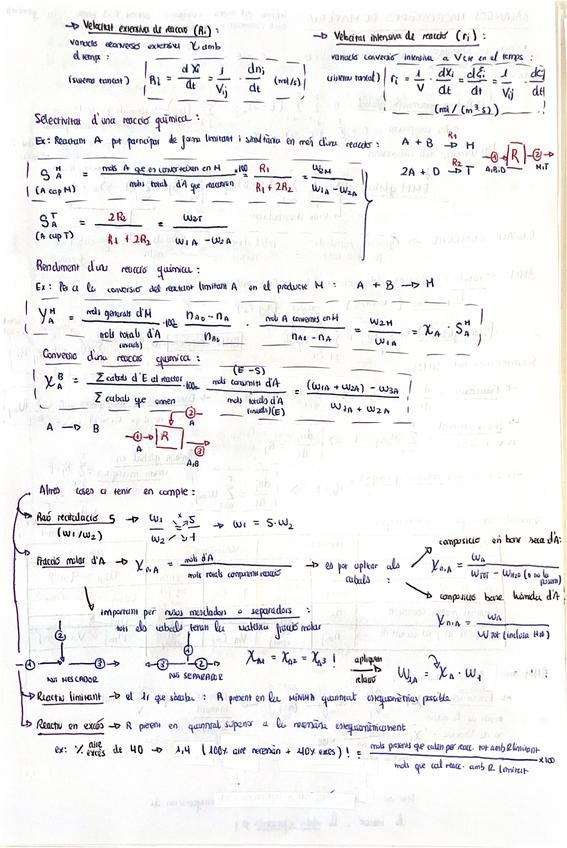 → Velocitat extensiva de reacció (Ri) :
variació conversió extensiva χ amb
el temps :
(sistema tancat) Ri = dXi/dt = 1/Vij · dnj/dt (mol/s)
→ Velocitat intensiva de reacció (ri) :
variació conversió intensiva a V cte en el temps :
(sistema tancat) ri = 1/V · dXi/dt = dξi/dt = 1/Vij · dcj/dt
(mol/(m³s))
Selectivitat d'una reacció química :
Ex : Reactant A pot participar de forma limitant i simultània en més d'una reacció :
A + B —R1→ M
2A + D —R2→ T
① R ② A,B,D M,T
S_A^M = mols A que es converteixen en M / mols totals d'A que reaccionen ×100 = R1 / R1 + 2R2 = W2M / W1A − W2A
(A cap M)
S_A^T = 2R2 / R1 + 2R2 = W2T / W1A − W2A
(A cap T)
Rendiment d'una reacció química :
Ex : Per a la conversió del reactant limitant A en el producte M : A + B → M
Y_A^M = mols generats d'M / mols totals d'A (inicials) ·100 = nA0 − nA / nA0 · mols A convertits en M / nA0 − nA = W2M / W1A = XA · S_A^M
Conversió d'una reacció química :
(E − S)
X_A^B = Σ cabals d'E al reactor / Σ cabals que entren ·100 = mols consumits d'A / mols totals d'A (inicials)(E) = (W1A + W2A) − W3A / W1A + W2A
A → B
① A R ② A ③ A,B
Altres coses a tenir en compte :
Raó recirculació S → W1/W2 = S/1 → W1 = S·W2
(W1/W2)
Fracció molar d'A → χ0,A = mols d'A / mols totals components reacció → es pot aplicar als
cabals :
composició en base seca d'A:
χ0,A = WA / WTOT − WH2O
composició base humida d'A :
χn,A = WA / WTOT (inclosa H2O)
important per nusos mescladors o separadors :
tots els cabals tenen la mateixa fracció molar
① ② ③ NUS MESCADOR
③ ④ ② NUS SEPARADOR
XA1 = XA2 = XA3 !
apliquem
relació
W1A = XA · W1
Reactiu limitant → el R que s'acaba : A present en la MÍNIMA quantitat estequiomètrica possible
Reactiu en excés → R present en quantitat superior a la necessària estequiomètricament
ex: % aire excés de 40 → 1,4 (100% aire necessari + 40% excés) ! = mols presents que calen per reacc. tot amb R limitant / mols que cal reacc. amb R limitant ×100